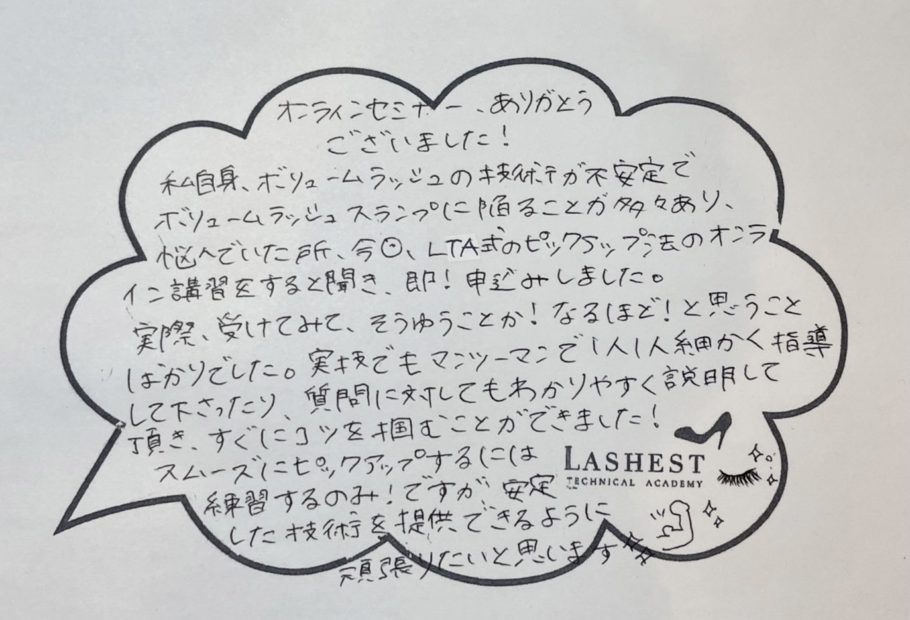 オンラインセミナー、ありがとう
ございました！
私自身、ボリュームラッシュの技術が不安定で
ボリュームラッシュスランプに陥ることが多々あり、
悩んでいた所、今回、LTA式のピックアップ法のオンラ
イン講習をすると聞き、即！申込みしました。
実際、受けてみて、そうゆうことか！なるほど！と思うこと
ばかりでした。実技でもマンツーマンで1人1人細かく指導
して下さったり、質問に対してもわかりやすく説明して
頂き、すぐにコツを掴むことができました！
スムーズにピックアップするには
練習するのみ！ですが、安定
した技術を提供できるように
頑張りたいと思います
LASHEST
TECHNICAL ACADEMY